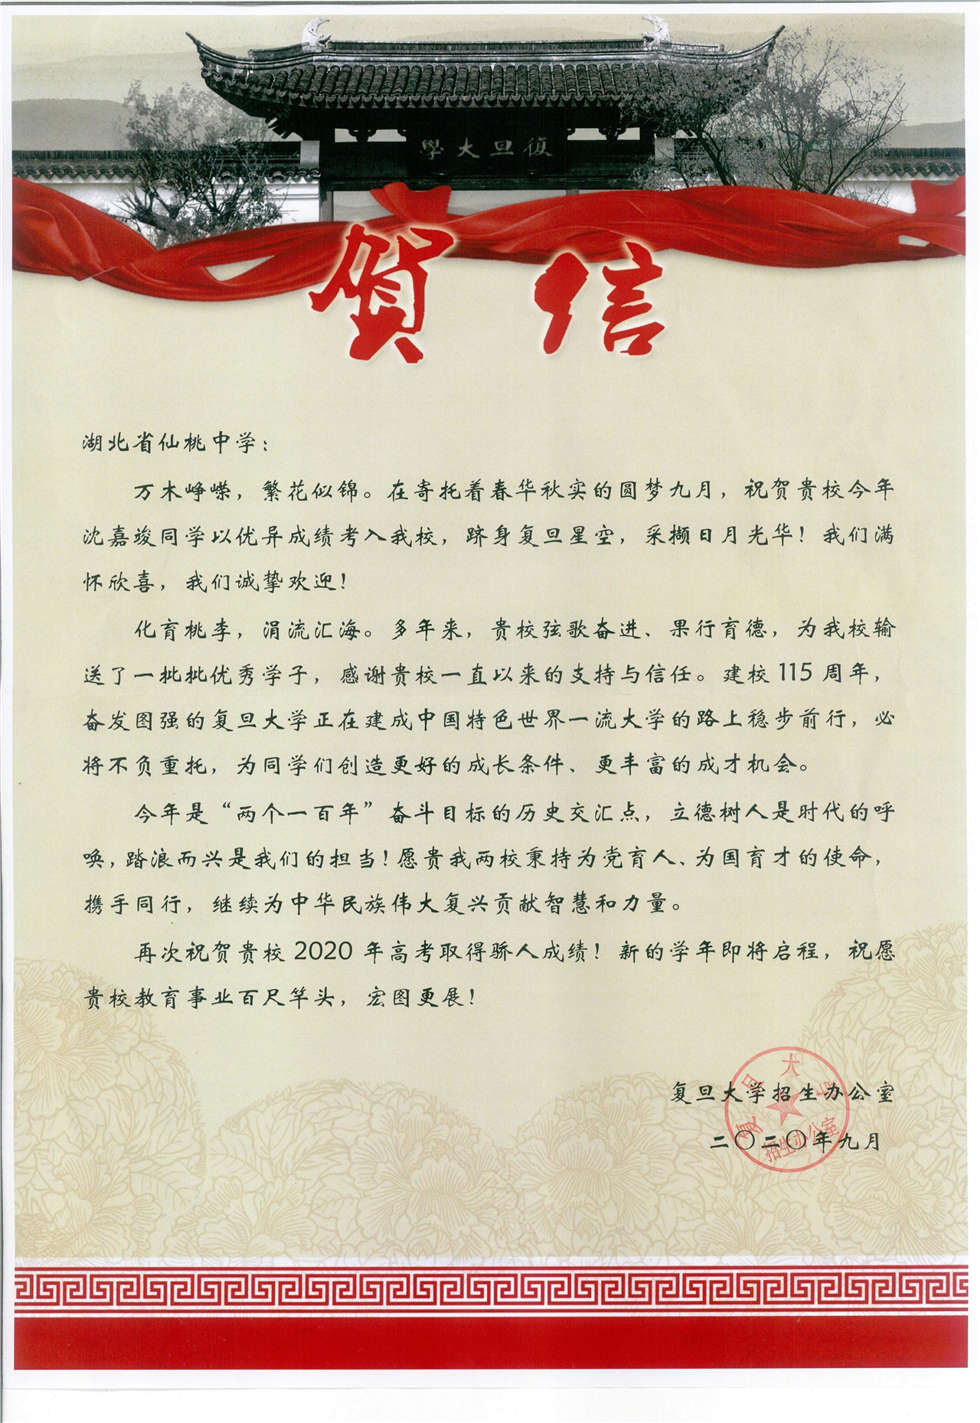 復旦大學
賀信
湖北省仙桃中学：
万木峥嵘，繁花似锦。在寄托着春华秋实的圆梦九月，祝贺贵校今年
沈嘉竣同学以优异成绩考入我校，跻身复旦星空，采撷日月光华！我们满
怀欣喜，我们诚挚欢迎！
化育桃李，涓流汇海。多年来，贵校弦歌奋进、果行育德，为我校输
送了一批批优秀学子，感谢贵校一直以来的支持与信任。建校115周年，
奋发图强的复旦大学正在建成中国特色世界一流大学的路上稳步前行，必
将不负重托，为同学们创造更好的成长条件、更丰富的成才机会。
今年是“两个一百年”奋斗目标的历史交汇点，立德树人是时代的呼
唤，踏浪而兴是我们的担当！愿贵我两校秉持为党育人、为国育才的使命，
携手同行，继续为中华民族伟大复兴贡献智慧和力量。
再次祝贺贵校2020年高考取得骄人成绩！新的学年即将启程，祝愿
贵校教育事业百尺竿头，宏图更展！
复旦大学招生办公室
二〇二〇年九月
复旦大学
招生办公室